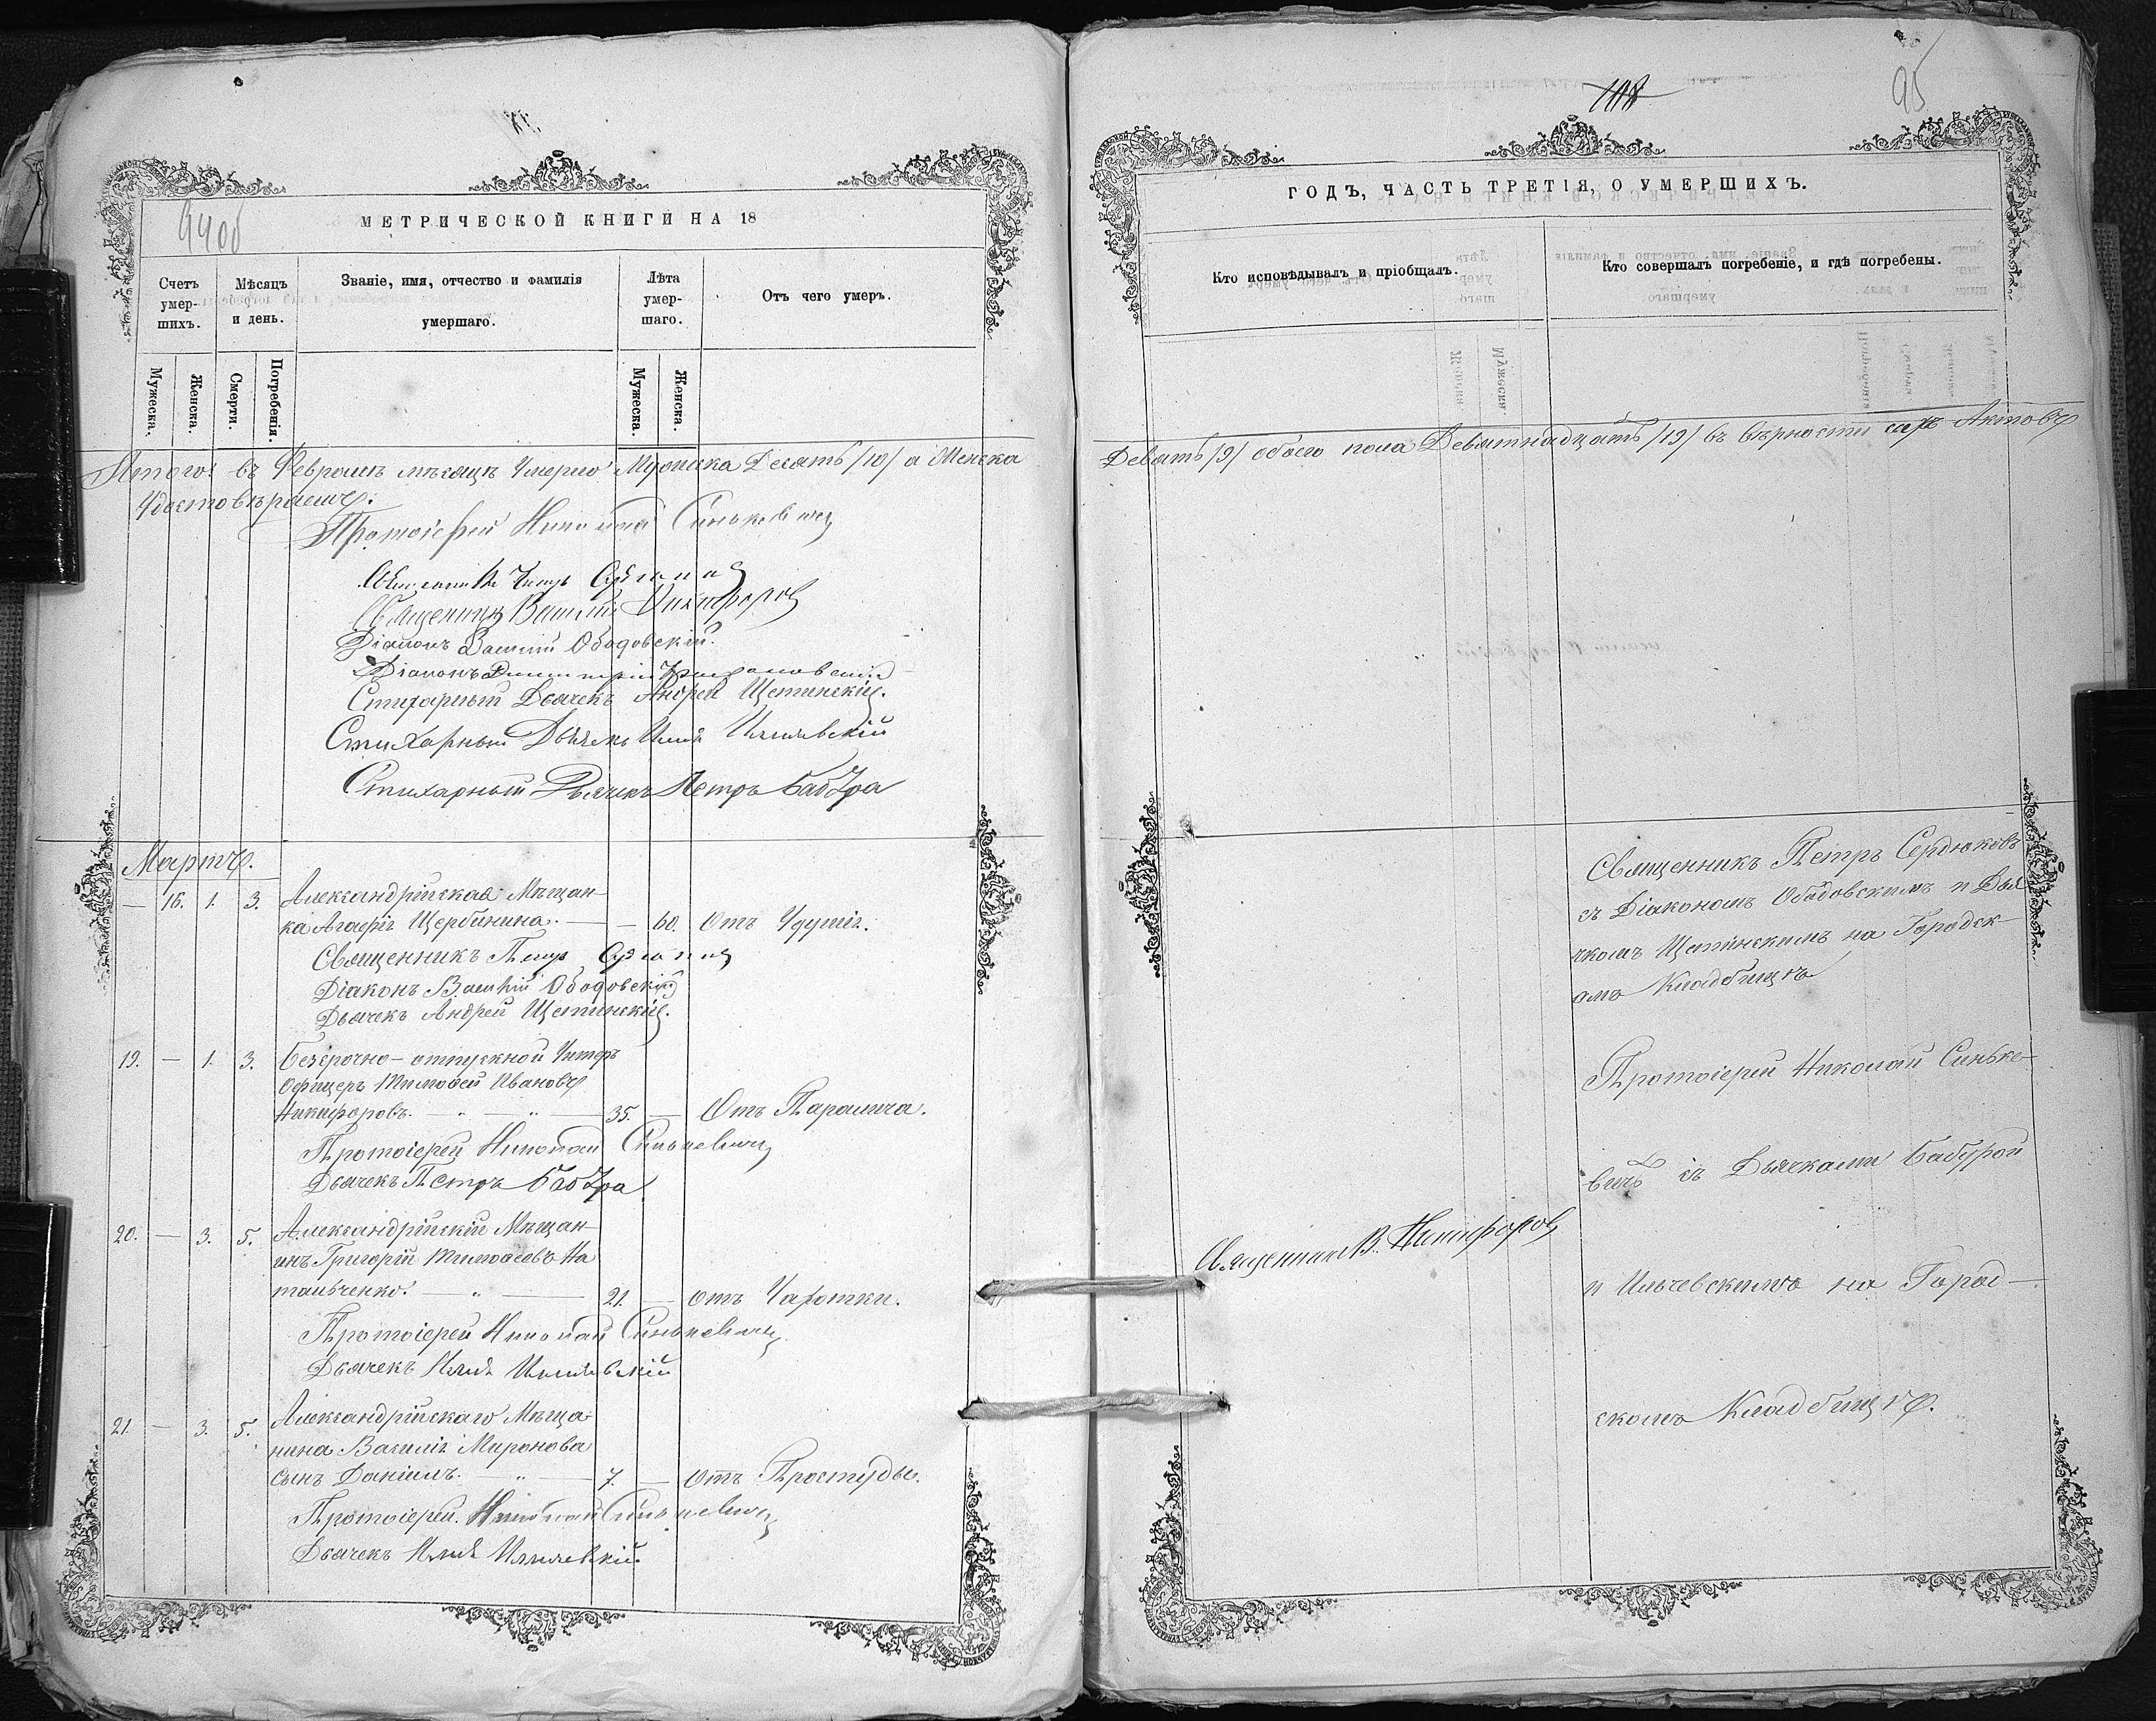 94об
МЕТРИЧЕСКОЙ КНИГИ НА 18
Счетъ умер-шихъ.
Мѣсяцъ и день.
Званіе, имя, отчество и фамилія умершаго.
Лѣта умер-шаго.
Отъ чего умеръ.
Мужеска.
Женска.
Смерти.
Погребенія.
Мужеска.
Женска.
Итого въ Февралѣ мѣсяцѣ Умерло Мужеска Десять /10/ а Женска
Удостовѣряемъ.
Протоіерей Николай Синькевичъ
Священникъ Петръ
Священникъ Василій Никифоровъ
Діаконъ Василій Ободовскій.
Діаконъ Димитрій
Стихарный Дьячекъ Андрей Щетинскій.
Стихарный Дьячекъ Илія Ильчевскій
Стихарный Дьячекъ Петръ Бабура
Мартъ.
— 16. 1. 3. Александрійская Мѣщан-
ка Агафія Щербинина. — — 60. Отъ Удушія.
Священникъ Петръ
Діаконъ Василій Ободовскій
Дьячекъ Андрей Щетинскій.
19. — 1. 3. Безсрочно-отпускной Унтеръ
Офицеръ Тимофей Ивановъ
Никифоровъ. — „ — „ — 35. — Отъ Паралича.
Протоіерей Николай Синькевичъ
Дьячекъ Петръ Бабура
20. — 3. 5. Александрійскій Мѣщан-
инъ Григорій Тимофеевъ На
тальченко. — „ — 21. — отъ Чахотки.
Протоіерей Николай Синькевичъ
Дьячекъ Илія Ильчевскій
21. — 3. 5. Александрійскаго Мѣща-
нина Василія Миронова
сынъ Даніилъ. — „ — 7. — отъ Простуды.
Протоіерей Николай Синькевичъ
Дьячекъ Илія Ильчевскій.
108
95
ГОДЪ, ЧАСТЬ ТРЕТІЯ, О УМЕРШИХЪ.
Кто исповѣдывалъ и пріобщалъ.
Кто совершалъ погребеніе, и гдѣ погребены.
Девять /9/ обоего пола Девятнадцать /19/ въ вѣрности сихъ Актовъ
Священникъ Петръ Сердюковъ
съ Діакономъ Ободовскимъ и Дья
чкомъ Щетинскимъ на Городск-
омъ Кладбищѣ
Протоіерей Николай Синьке-
вичъ съ Дьячками Бабурой
Священникъ В. Никифоровъ
и Ильчевскимъ на Город-
скомъ Кладбищѣ.